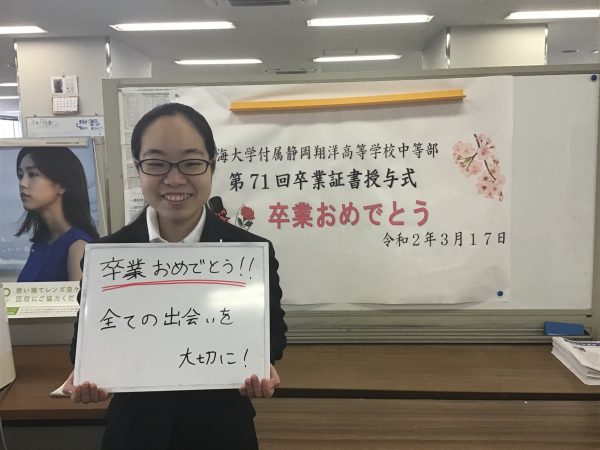 海大学付属静岡翔洋高等学校中等部
第71回卒業証書授与式
卒業おめでとう
令和2年3月17日
卒業おめでとう!!
全ての出会いを
大切に!
使い捨てレンズ空ケ
回収にご協力くだ